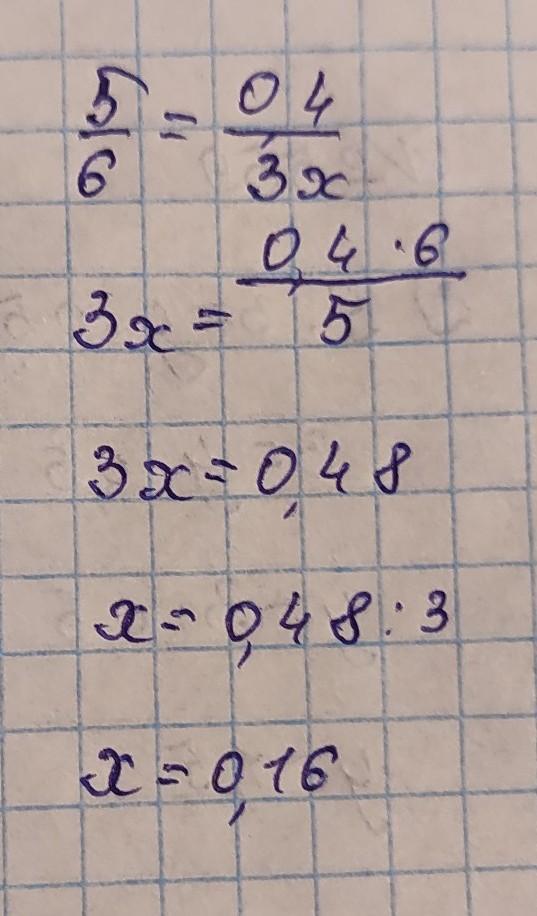 5/6 = 0,4/3x
3x = 0,4·6/5
3x = 0,48
x = 0,48:3
x = 0,16